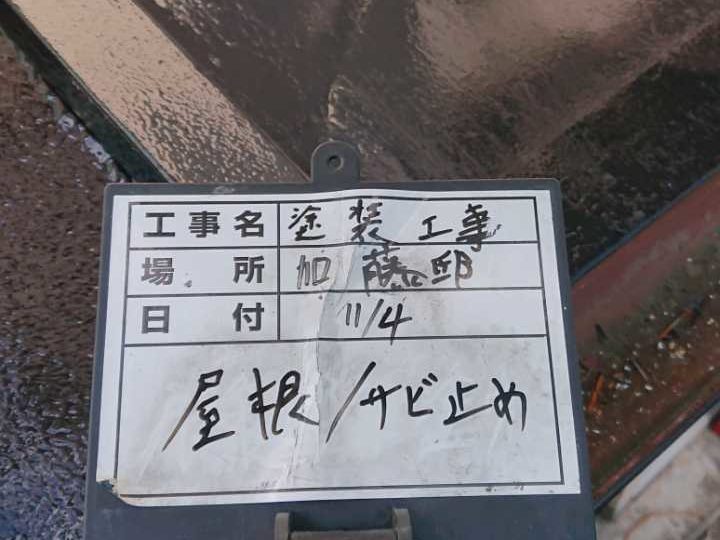 工事名 塗装工事
場所 加藤邸
日付 11/4
屋根/サビ止め